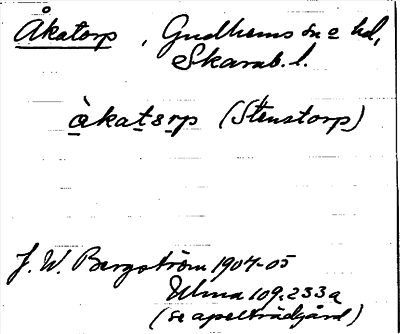 Åkatorp, Gudhems sn o hd,
Skarab. l.
àkatɜrp (Stenstorp)
J. W. Bergström 1904-05
Ulma 109:233a
(se apelträdgård)